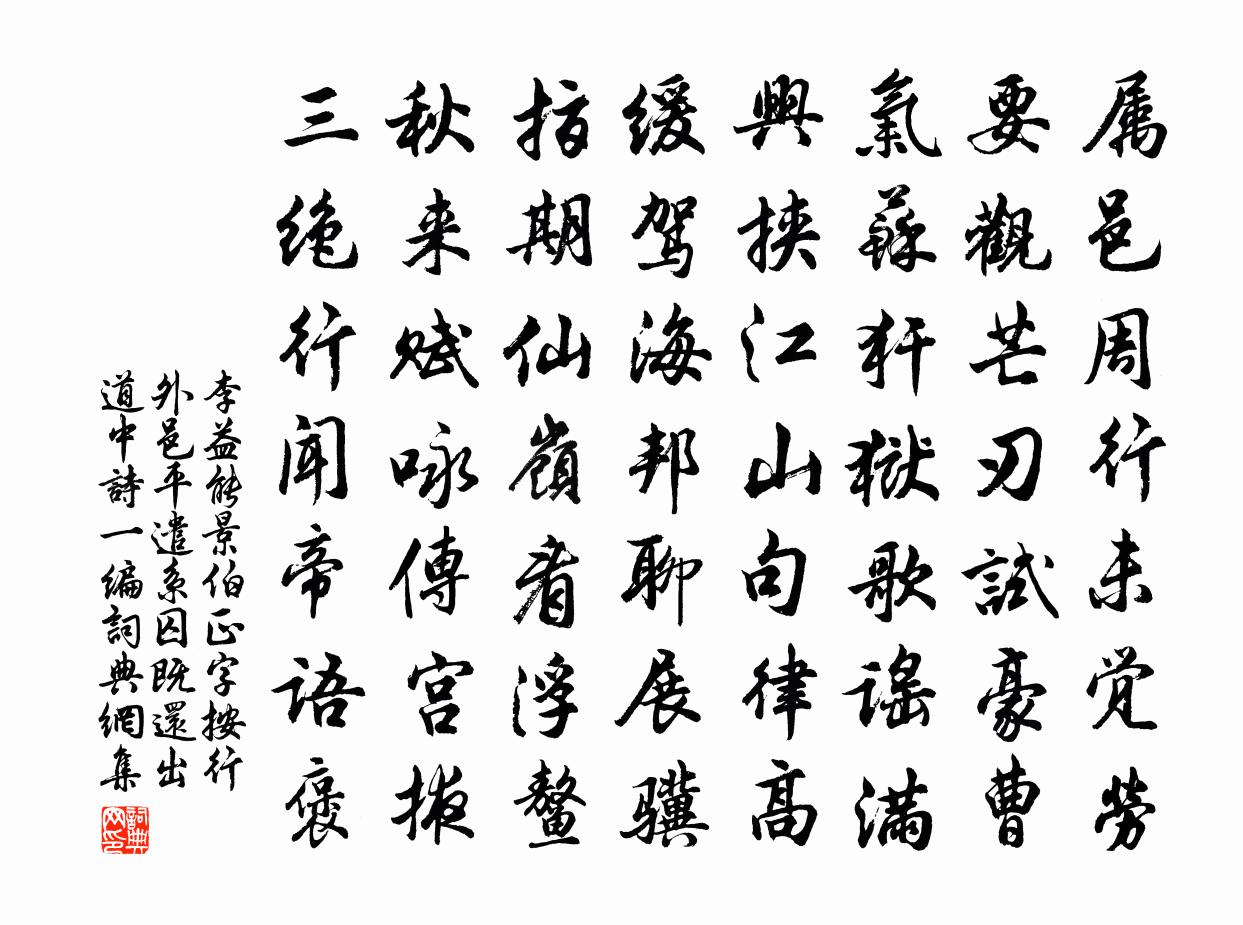 属邑周行未觉勞
要觀芒刃試豪曹
氣蘇犴獄歌謡滿
興挾江山句律高
缓驾海邦聊展驥
指期仙嶺看浮鰲
秋来赋咏傳宫掖
三绝行聞帝語褒
李益能景伯正字按行
外邑平遣系囚既還出
道中詩一编詞典網集
詞典网印